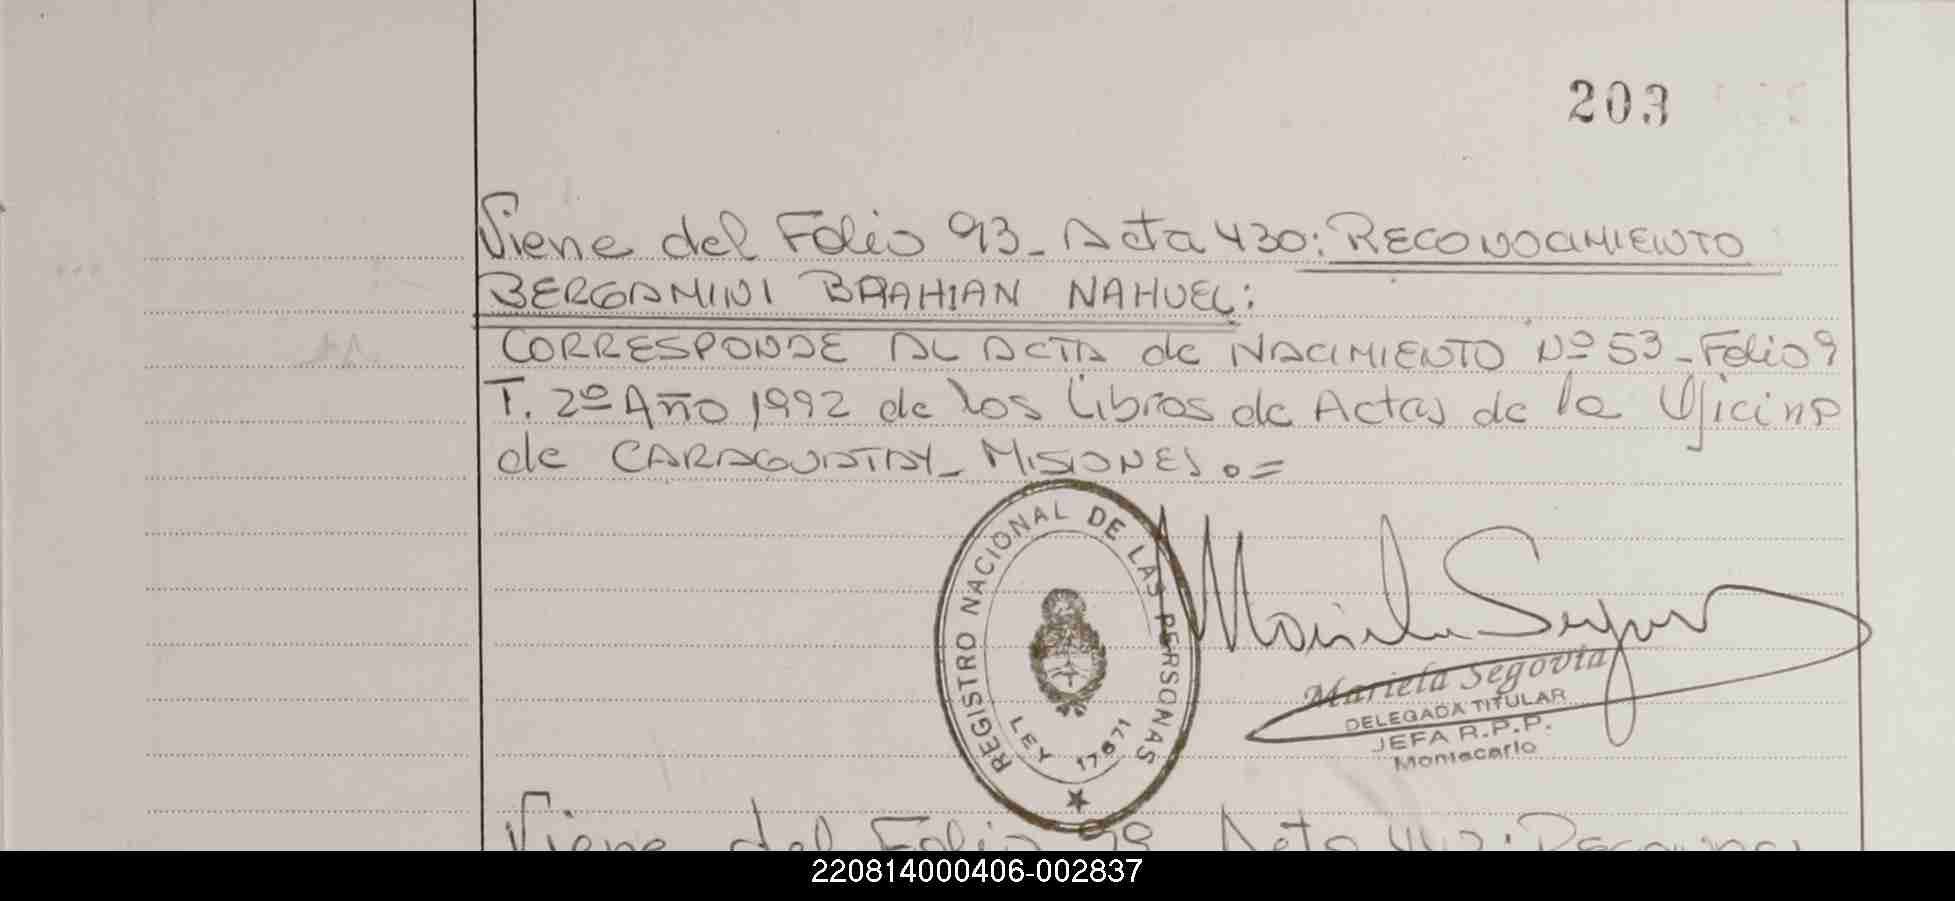 203
Viene del Folio 93_ Acta 430: RECONOCIMIENTO
BERGAMINI BRAHIAN NAHUEL:
CORRESPONDE AL ACTA de NACIMIENTO Nº 53_Folio 9
T. 2º Año 1992 de los Libros de Actas de la Oficina
de CARAGUATAY_ MISIONES.=
REGISTRO NACIONAL DE LAS PERSONAS
LEY 17671
Mariela Segovia
Mariela Segovia
DELEGADA TITULAR
JEFA R.P.P.
Montecarlo
Viene del Folio 98 Acta
220814000406-002837